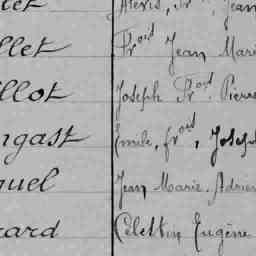 Alexis, Fr ois, Jean
llet Fr ois Jean Mari
llot Joseph Fr ois Pierre
ngast Emile, fr ois, Joseph
quel Jean Marie Adrien
rard Célestin Eugène